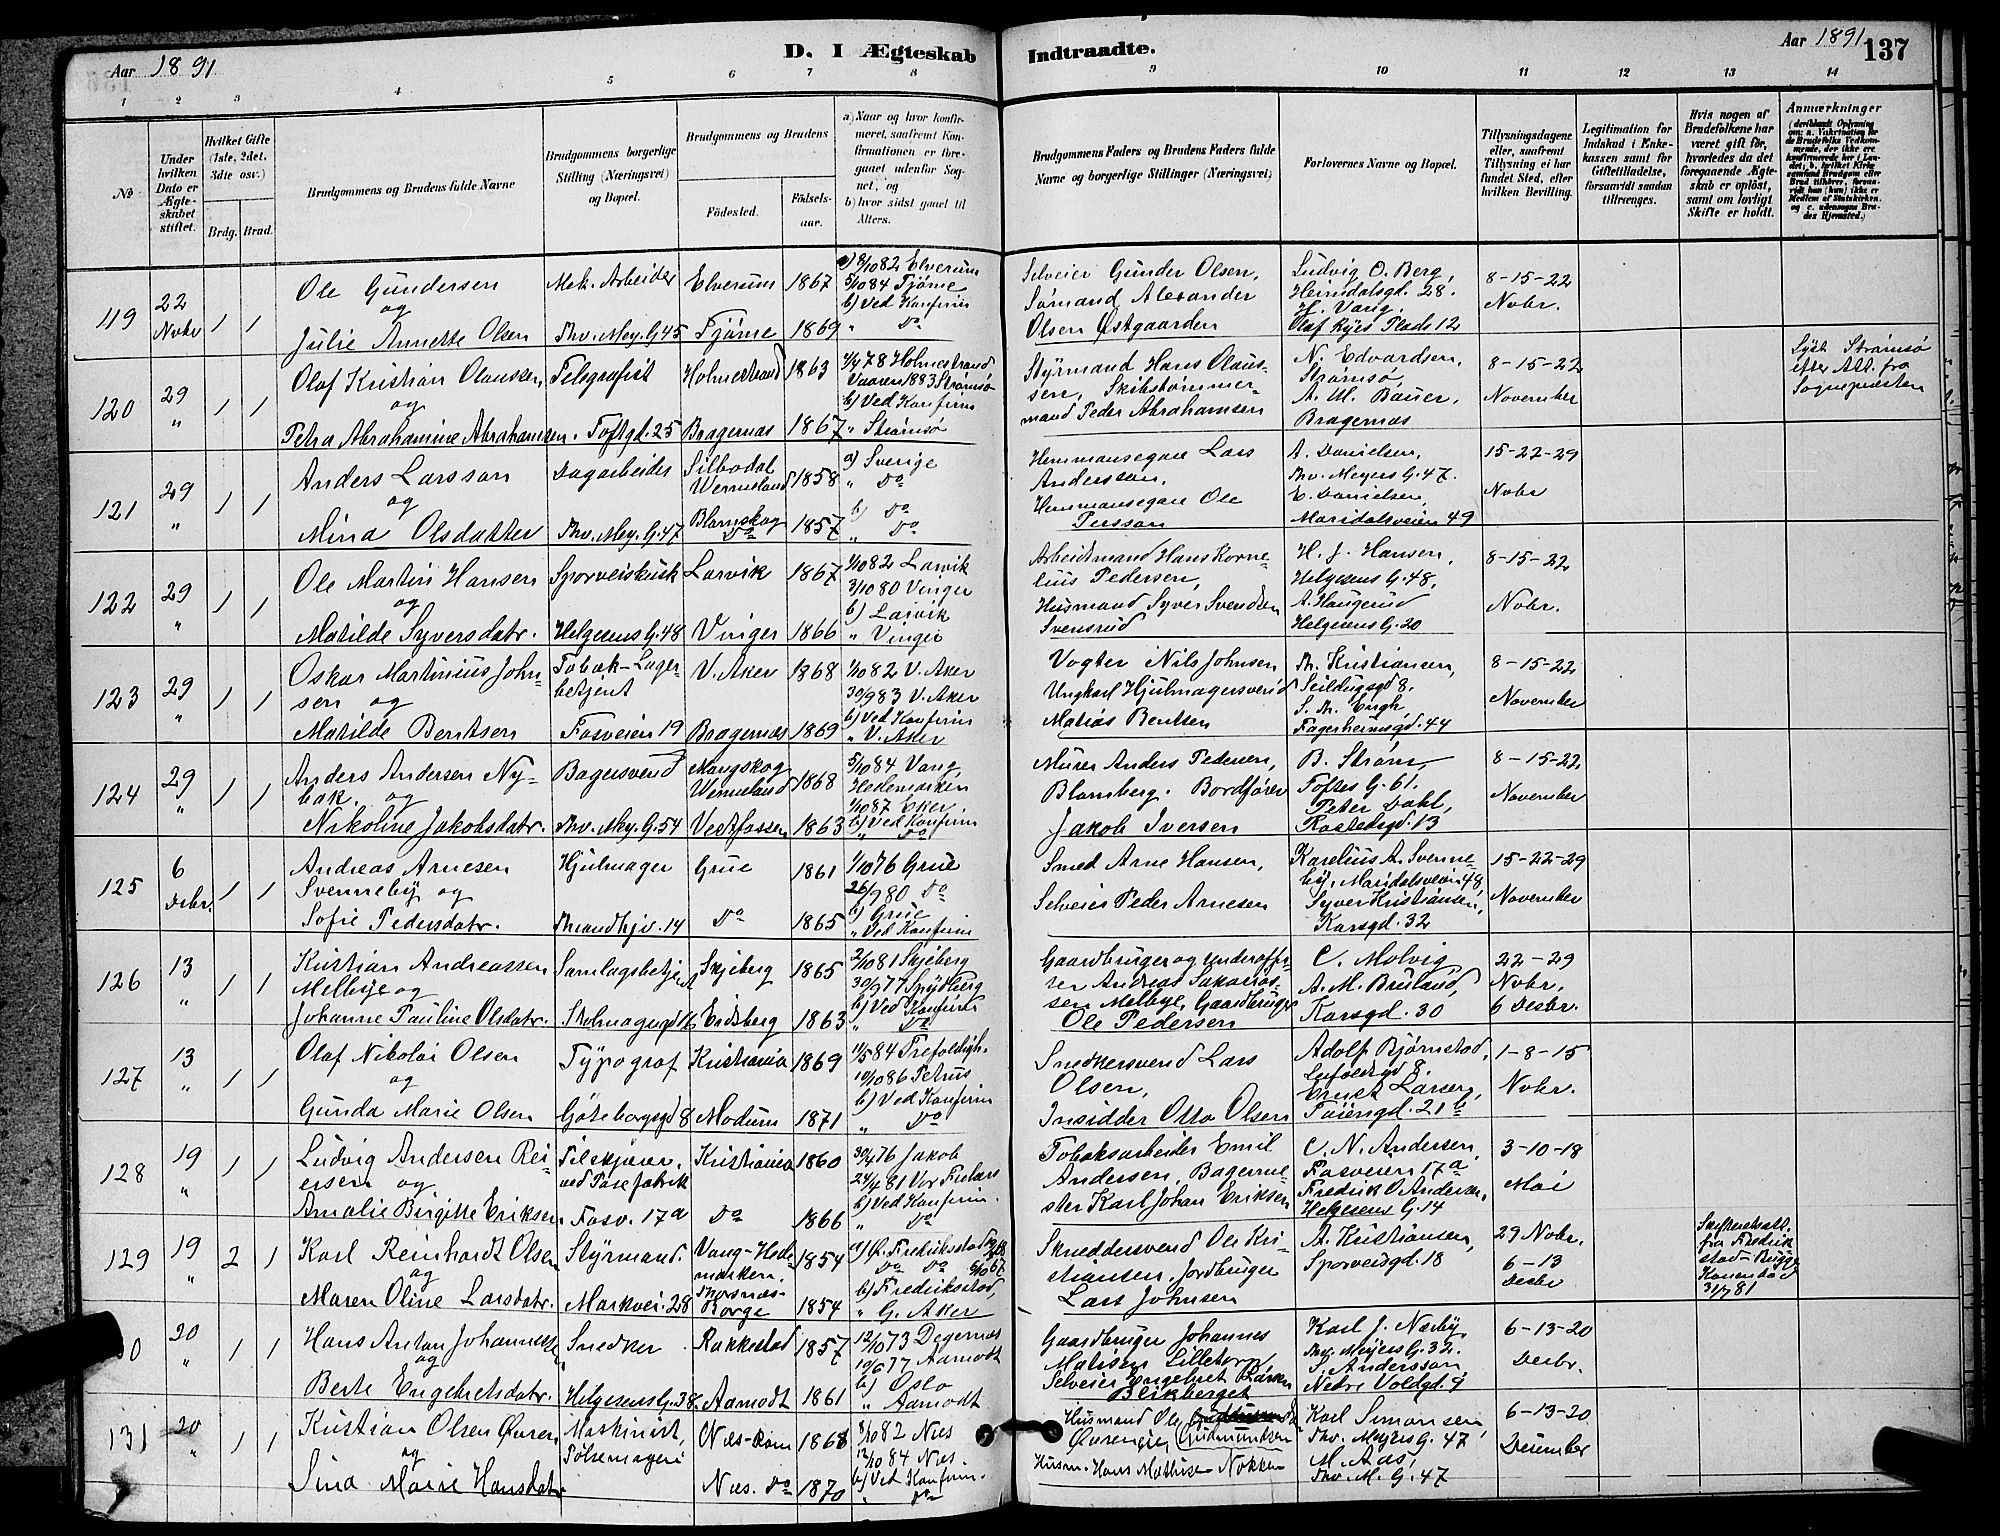 Aar 1891
D. I Ægteskab
Indtraadte.
Aar 1891
137
1 2 3 4 5 6 7 8 9 10 11 12 13 14
No
Under hvilken Dato er Ægteskabet stiftet.
Hvilket Gifte (1ste, 2det, 3dte osv.)
Brdg. Brud.
Brudgommens og Brudens fulde Navne
Brudgommens borgerlige Stilling (Næringsvei) og Bopæl.
Brudgommens og Brudens
Fødested. Fødselsaar.
a) Naar og hvor konfirmeret, saafremt Konfirmationen er foregaaet udenfor Sognet, og
b) hvor sidst gaaet til Alters.
Brudgommens Faders og Brudens Faders fulde Navne og borgerlige Stillinger (Næringsvei)
Forlovernes Navne og Bopæl.
Tillysningsdagene eller, saafremt Tillysning ei har fundet Sted, efter hvilken Bevilling.
Legitimation for Indskud i Enkekassen samt for Giftetilladelse, forsaavidt saadan tiltrænges.
Hvis nogen af Brudefolkene har været gift før, hvorledes da det foregaaende Ægteskab er opløst, samt om lovligt Skifte er holdt.
Anmærkninger
119
22 Novbr
1 1
Ole Gundersen
og
Julie Annette Olsen
Mek. Arbeider
Thv. Mey. G. 45
Elverum 1867
Tjøme 1869
a) 8/10 82 Elverum
5/10 84 Tjøme
b) Ved Konfirm
" Do
Selveier Gunder Olsen,
Sømand Alexander
Olsen Østgaarden
Ludvig O. Berg,
Heimdalsgd. 28.
H. Vang.
Olaf Ryes Plads 12
8-15-22
Nobr.
120
29 "
1 1
Olaf Kristian Olaussen,
og
Petra Abrahamine Abrahamsen.
Telegrafist
Toftgd. 25
Holmestrand 1863
Bragernæs 1867
Vaaren 1883 Strømsø
b) Ved Konfirm
" Strømsø
Styrmand Hans Olaus-
sen, Skibstømmer-
mand Peder Abrahamsen
N. Edvardsen,
Strømsø
A. M. Bauer,
Bragernæs
8-15-22
November
Lyst Strømsø
efter Att. fra
Sognepresten
121
29 "
1 1
Anders Larsson
og
Mina Olsdatter
Dagarbeider
Thv. Mey. G. 47
Silbodal
Wermeland 1858
Blomskog
Do 1857
a) Sverige
" Do
b) Do
" Do
Hemmansegare Lars
Andersson,
Hemmansegare Ole
Persson
A. Danielsen,
Thv. Meyers G. 47.
E. Danielsen,
Maridalsveien 49
15-22-29
Nobr
122
29 "
1 1
Ole Martin Hansen
og
Matilde Syversdatr.
Sporveiskusk
Helgesens G. 48
Larvik 1867
Vinger 1866
1/10 82 Larvik
3/10 80 Vinger
b) Larvik
" Vinger
Arbeidmand Hans Korne-
lius Pedersen,
Husmand Syver Svendsen
Svensrud
H. J. Hansen,
Helgesens G. 48,
A. Haugerud
Helgesens G. 20
8-15-22
Nobr.
123
29 "
1 1
Oskar Martinius John-
sen og
Matilde Berntsen
Tobak-Lager-
betjent
Fosveien 19
V. Aker 1868
Bragernæs 1869
1/10 82 V. Aker
30/9 83 V. Aker
b) Ved Konfirm
" V. Aker
Vogter Nils Johnsen
Ungkarl Hjulmagersvend
Matias Bentsen
Th. Kristiansen,
Seildugsgd 8,
S. Th. Engh
Fagerheimsgd. 44
8-15-22
November
124
29 "
1 1
Anders Andersen Ny-
bak. og
Nikoline Jakobsdatr.
Bagersvend
Thv. Mey. G. 54
Mangskog
Wermeland 1868
Vestfossen 1863
5/10 84 Vang
Hedemarken
1/10 87 Eker.
b) Ved Konfirm
" Do
Murer Anders Pedersen,
Blomberg. Bordfører
Jakob Iversen
B. Strøm,
Toftes G. 61.
Peter Dahl,
Rostedsgd. 13
8-15-22
November
125
6 Debr.
1 1
Andreas Arnesen
Svenneby og
Sofie Pedersdatr.
Hjulmager
Thrandhjv. 14
Grue 1861
Do 1865
1/10 76 Grue
26/9 80 Do
b) Grue
" Ved Konfirm
Smed Arne Hansen,
Selveier Peder Arnesen
Karelius A. Svenne-
by, Maridalsveien 48
Syver Kristiansen,
Korsgd. 32
15-22-29
November
126
13 "
1 1
Kristian Andreassen
Melbye og
Johanne Pauline Olsdatr.
Samlagsbetjent
Skjeberg 1865
Eidsberg 1863
2/10 81 Skjeberg
30/9 77 Spydberg
b) Ved Konfirm
" Do
Gaardbruger og Underoffi-
ser Andreas
sen Melbye, Gaardbruger
Ole Pedersen
C. Molvig
A. M. Bruland,
Korsgd. 30
22-29
Nobr,
6 Desbr.
127
13 "
1 1
Olaf Nikolai Olsen
og
Gunda Marie Olsen
Typograf
Göteborgsgd 8
Kristiania 1869
Modum 1871
11/5 84 Trefoldigh.
10/10 86 Petrus
b) Ved Konfirm
" Do
Snedkersvend Lars
Olsen,
Insidder Otto Olsen
Adolf Bjørnstad,
Ernst Larsen,
Tøiengd. 21 b
1-8-15
Nobr.
128
19 "
1 1
Ludvig Andersen Rei-
ersen og
Amalie Birgitte Eriksen
Tilskjærer.
ved Posefabrik
Fosv. 17a
Kristiania 1860
Do 1866
30/4 76 Jakob
24/4 81 Vor Frelsers
b) Ved Konfirm.
" Do
Tobaksarbeider Emil
Andersen, Bagerme-
ster Karl Johan Eriksen
C. N. Andersen,
Fosveien 17a
Fredrik O. Andersen,
Helgesens G. 14
3-10-18
Mai
129
19 "
2 1
Karl Reinhardt Olsen
og
Maren Oline Larsdatr.
Styrmand.
Markvei. 28
Vang-Hede-
marken. 1854
Thorsnæs-
Borge 1854
a) Ø. Fredriksstad
Do Do
b) Fredriksstad,
" G. Aker
Skreddersvend Ole Kri-
stiansen, Jordbruger
Lars Johnsen
A. Kristiansen,
Sporveisgd. 18
29 Nobr.
6-13
Desbr
Skifteretsatt.
fra Fredrik
stad-
Konen død
31/7 81
130
20 "
1 1
Hans Anton Johannessen
og
Berte Engebretsdatr.
Snedker
Helgesens G. 38
Rakkestad 1857
Aamodt 1861
12/10 73 Degernes
10/6 77 Aamodt
b) Oslo
" Aamodt
Gaardbruger Johannes
Matisen Lilletorp
Selveier Engebret
Blikberget
Karl J. Næsby,
Thv. Meyers G. 32.
S. Andersson
Nedre Voldgd. 9
6-13-20
Desbr.
131
20 "
1 1
Kristian Olsen Øvren
og
Sina Marie Hansdatr
Maskinist,
Pølsemageri
Næs-Rom 1868
Næs. Do 1870
8/10 82 Næs
12/10 84 Næs.
b) Ved Konfirm.
" Do
Husmand Ole
Øvreneie, Gudmundsen
Husm. Hans Mathisen Nokken
Karl Simonsen,
Thv. Meyers G. 47
M. Aas,
Thv. M. G. 47
6-13-20
Desember